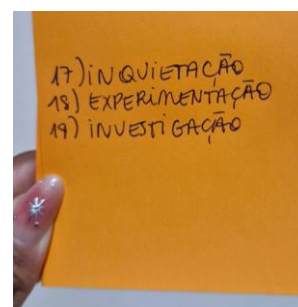 17) INQUIETAÇÃO
18) EXPERIMENTAÇÃO
19) INVESTIGAÇÃO